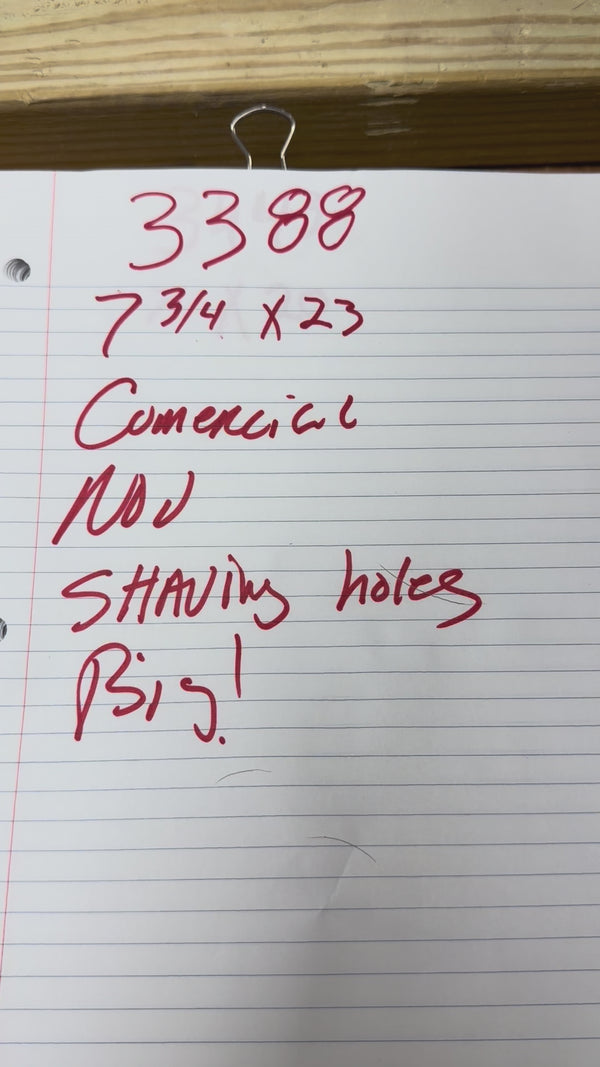 3388
7 3/4 X 23
Comercial
NOV
SHAVing holes
Big!